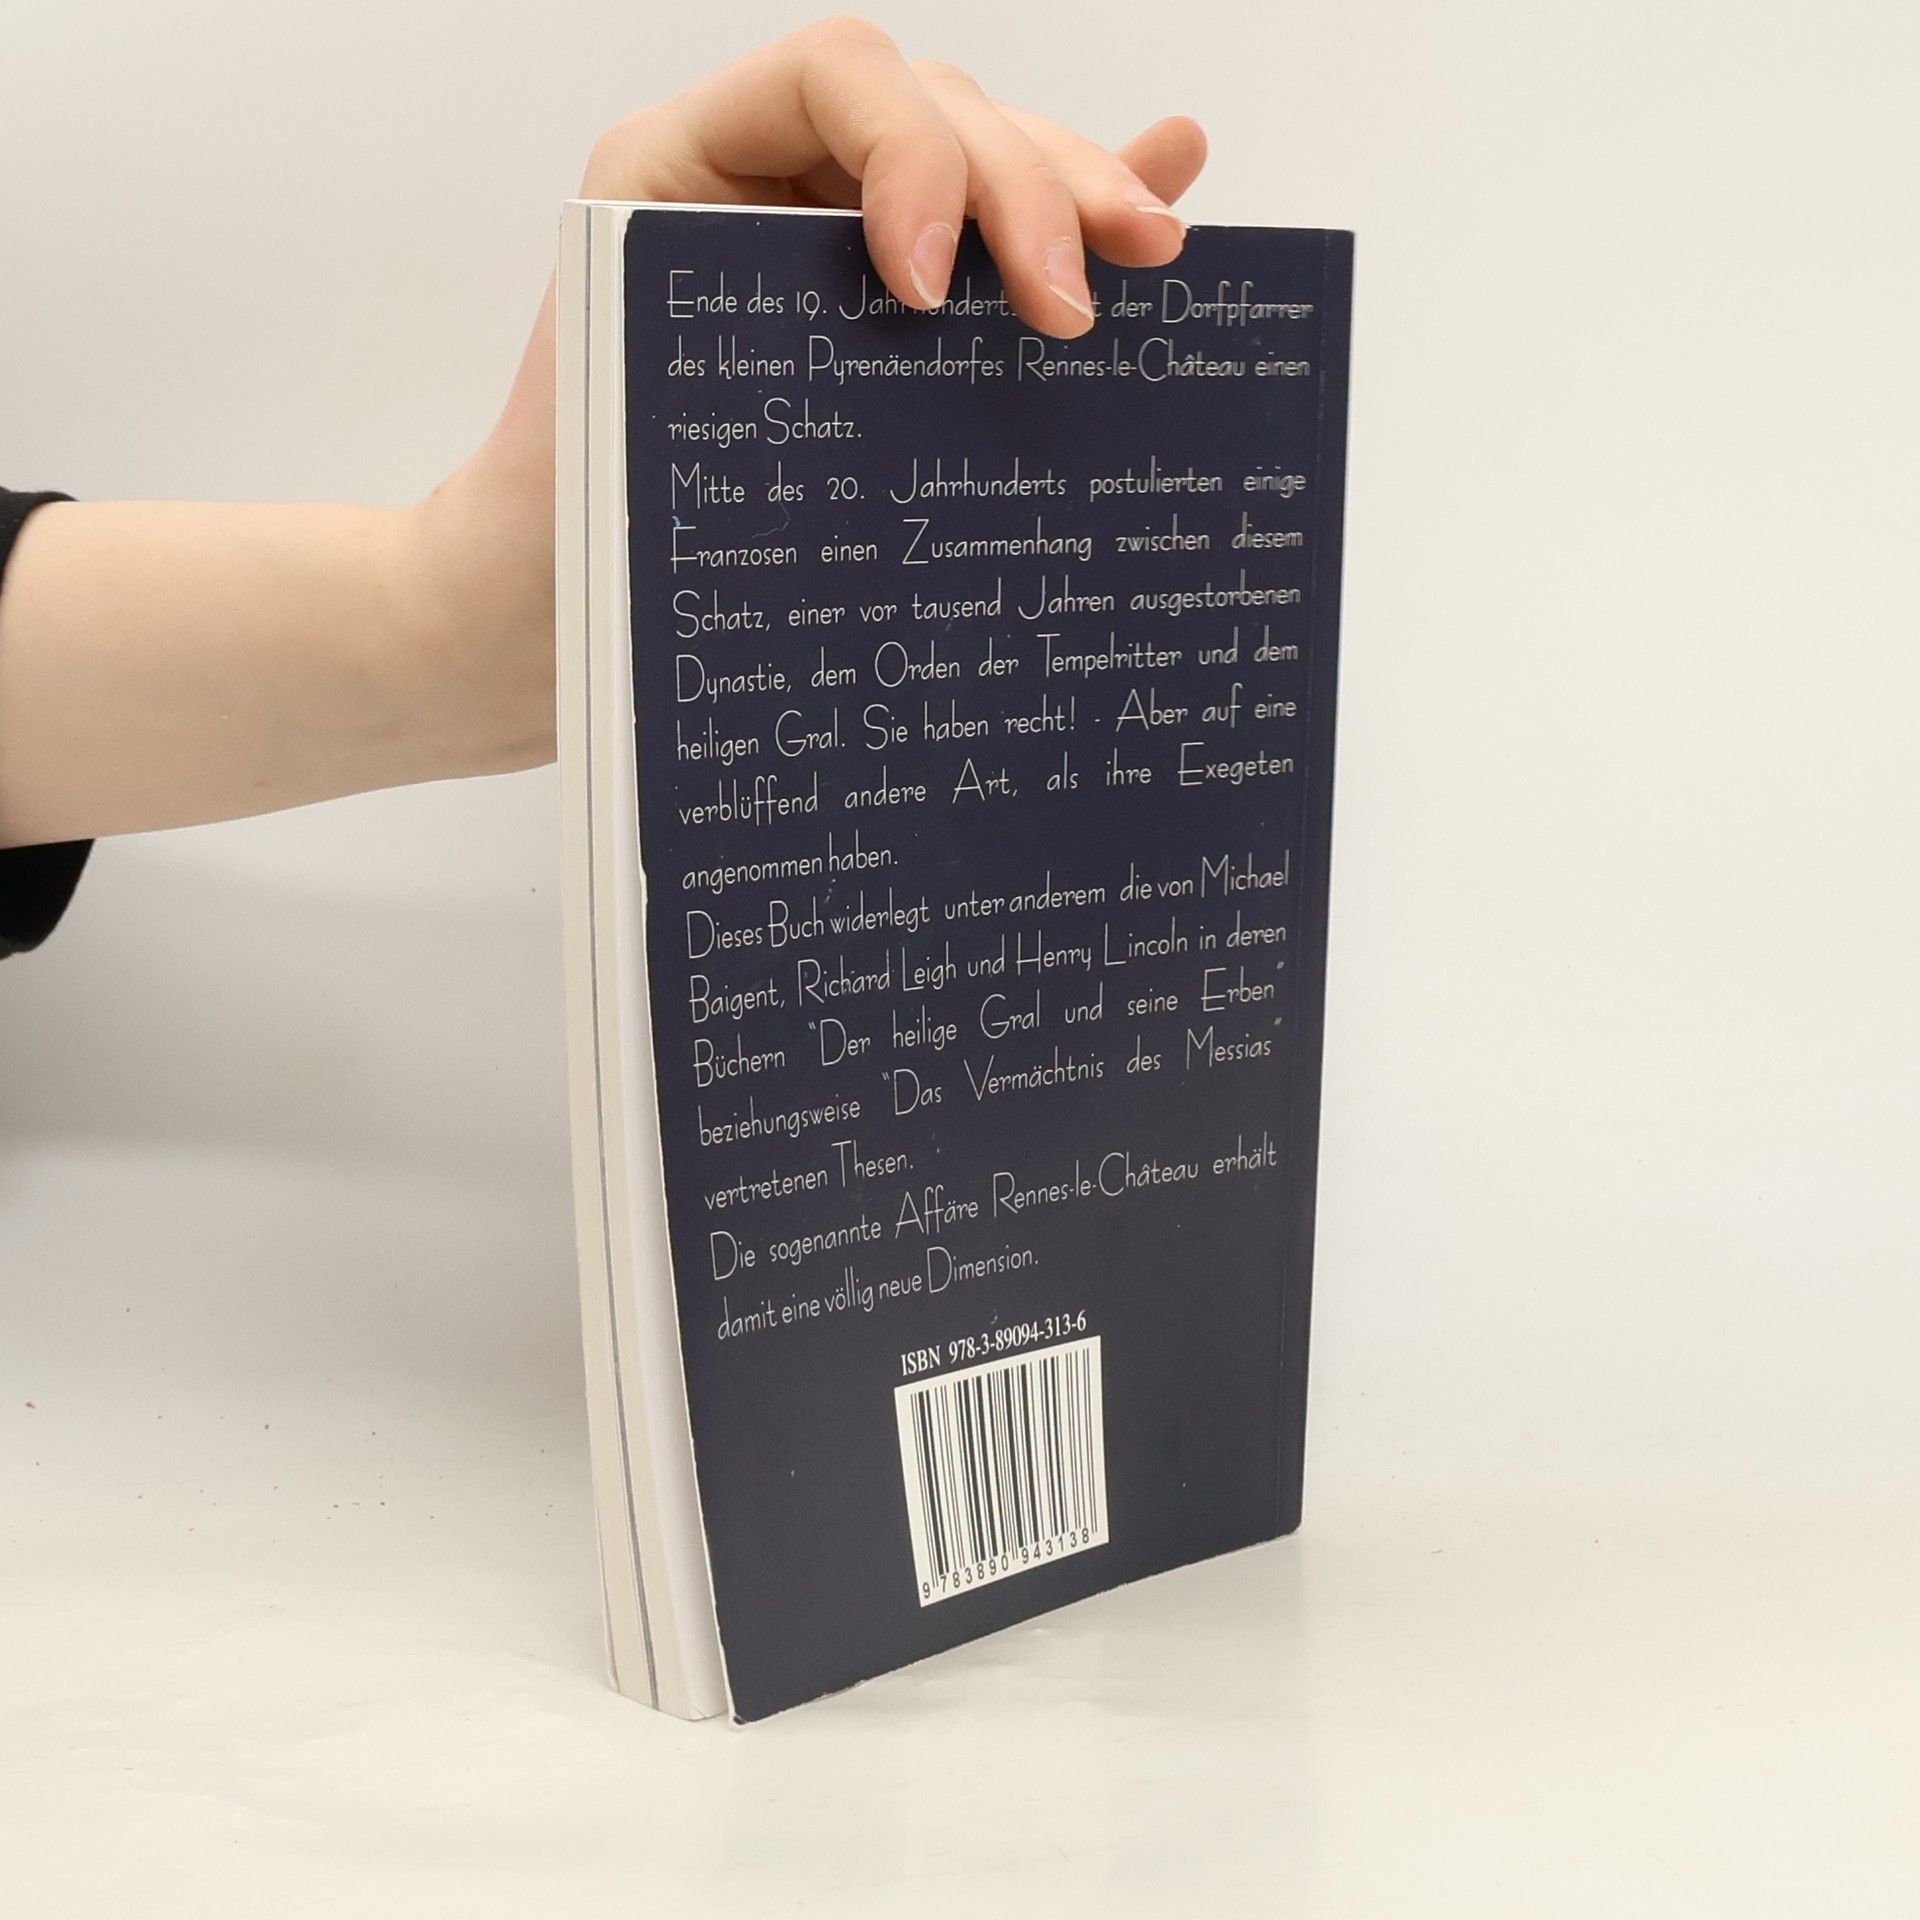 Ende des 19. Jahrhunderts der Dorfpfarrer
des kleinen Pyrenäendorfes Rennes-le-Château einen
riesigen Schatz.
Mitte des 20. Jahrhunderts postulierten einige
Franzosen einen Zusammenhang zwischen diesem
Schatz, einer vor tausend Jahren ausgestorbenen
Dynastie, dem Orden der Tempelritter und dem
heiligen Gral. Sie haben recht! - Aber auf eine
verblüffend andere Art, als ihre Exegeten
angenommen haben.
Dieses Buch widerlegt unter anderem die von Michael
Baigent, Richard Leigh und Henry Lincoln in deren
Büchern "Der heilige Gral und seine Erben"
beziehungsweise "Das Vermächtnis des Messias"
vertretenen Thesen.
Die sogenannte Affäre Rennes-le-Château erhält
damit eine völlig neue Dimension.
ISBN 978-3-89094-313-6
9 783890 943138